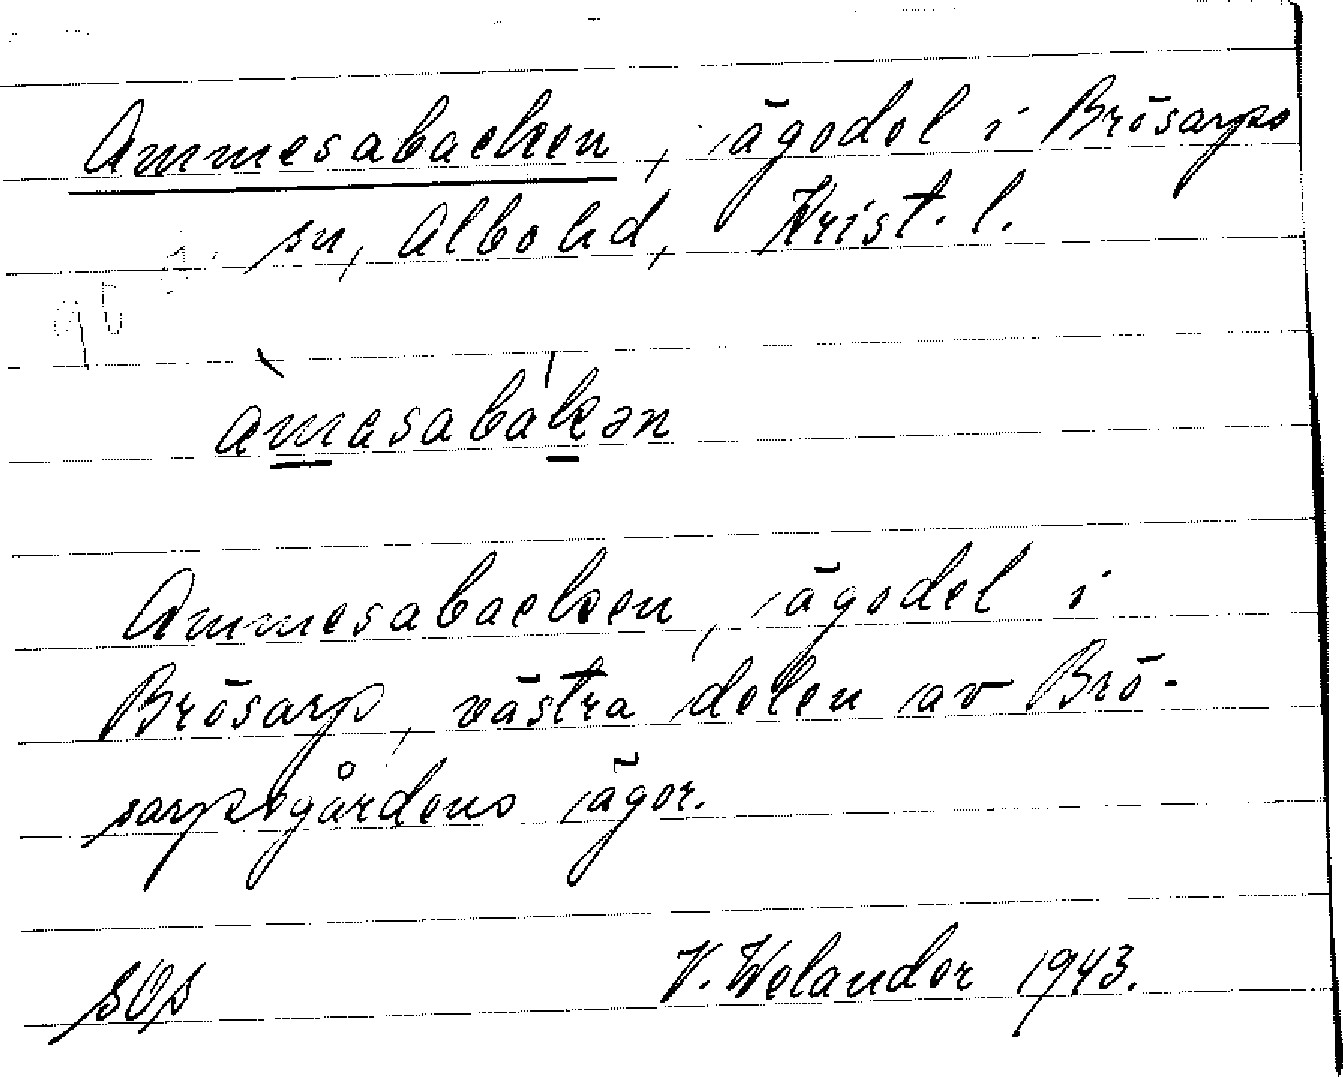 Ammesabacken, ägodel i Brösarps
sn, Albo hd, Krist. l.
àmesabákən
Ammesabacken, ägodel i
Brösarp, västra delen av Brö-
sarpsgårdens ägor.
SOS V. Welander 1943.